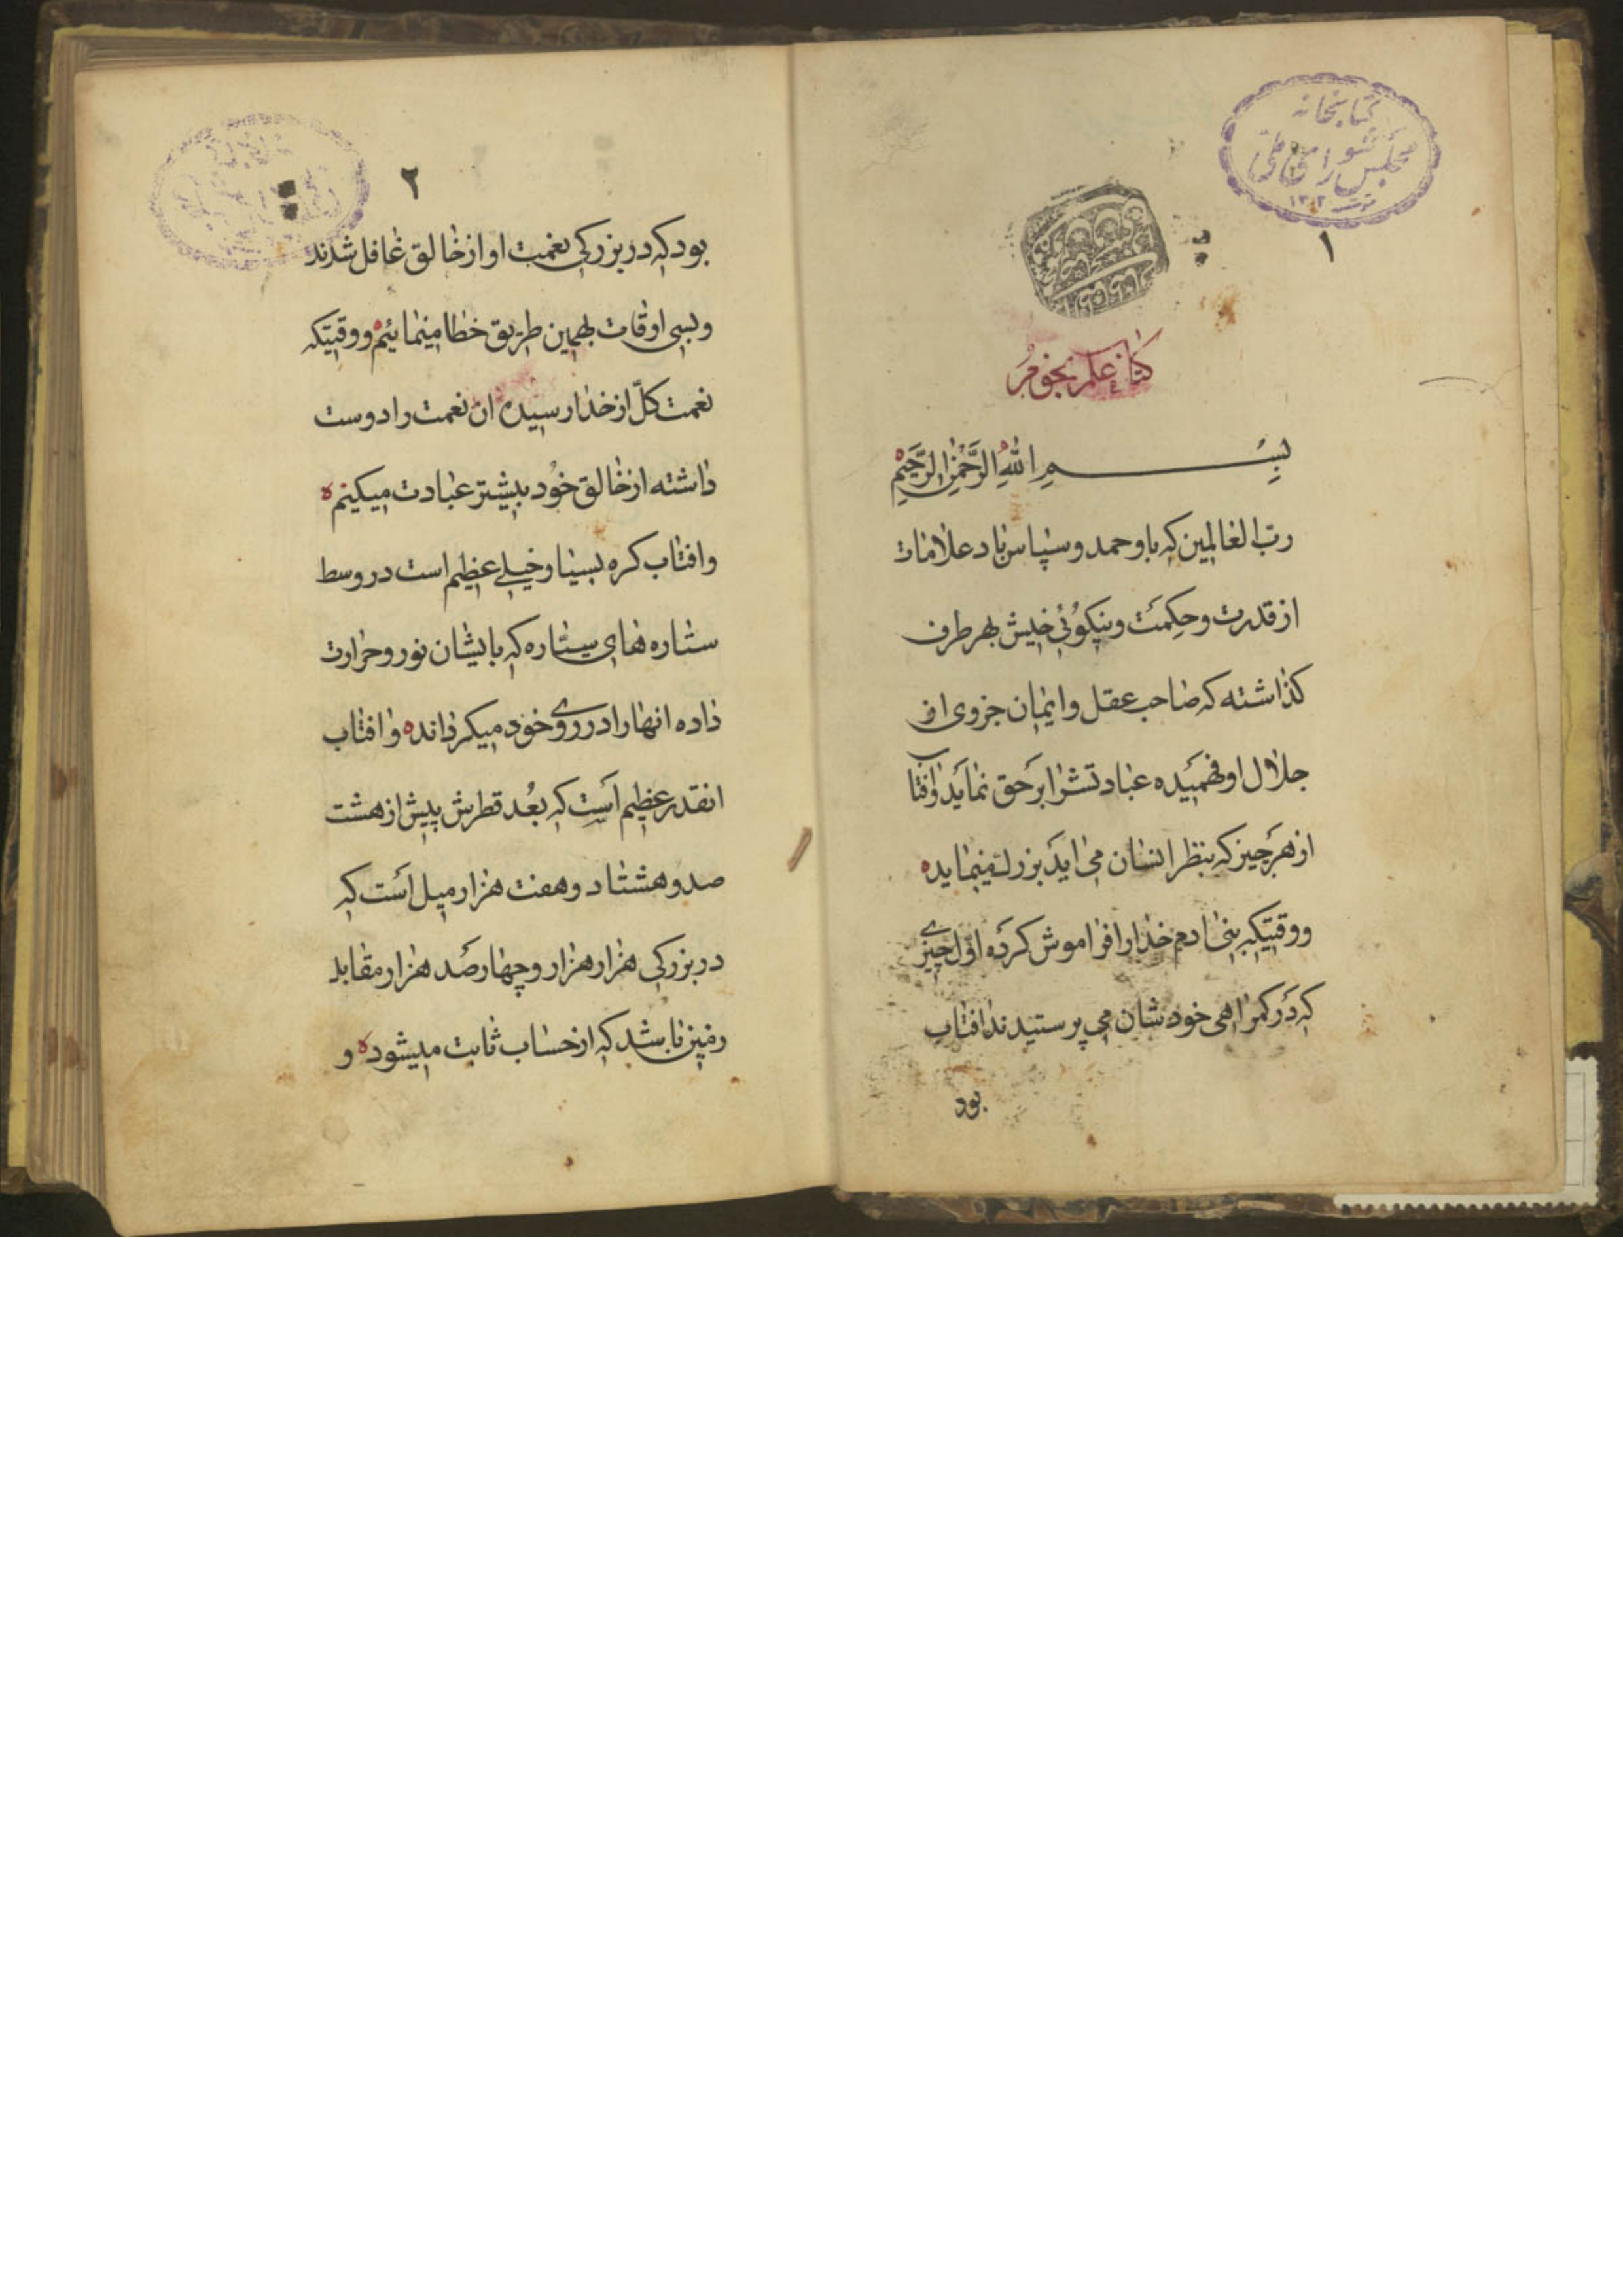 کتابخانه
مجلس شورای ملی
۱
کتاب علم نجوم
بسم الله الرحمن الرحیم
رب العالمین که باو حمد و سپاس باد علامات
از قدرت و حکمت و نیکوئی خیش بهر طرف
کذاشته که صاحب عقل و ایمان جزوی از
جلال او فهمیده عبادتش را بر حق نماید و افتاب
از هر چیز که بنظر انسان می اید بزرك مینماید ه
و وقتیکه بنی ادم خدا را فراموش کرده اول چیزی
که در کمراهی خودشان می پرستیدند افتاب
بود
۲
بود که در بزرکی نعمت او از خالق غافل شدند
و بسی اوقات بهمین طریق خطا مینمائیم ه و وقتیکه
نعمت کلّ از خدا رسیده ان نعمت را دوست
داشته از خالق خود بیشتر عبادت میکینم ه
و افتاب کره بسیا و خیلے عظیم است در وسط
ستاره های سیتاره که بایشان نور و حرارت
داده انها را در روی خود میکرداند ه و افتاب
انقدر عظیم است که بُعد قطرش پیش از هشت
صد و هشتاد و هفت هزار میل است که
در بزرکی هزار هزار و چهار صد هزار مقابل
زمین باشد که از حساب ثابت میشود ه و